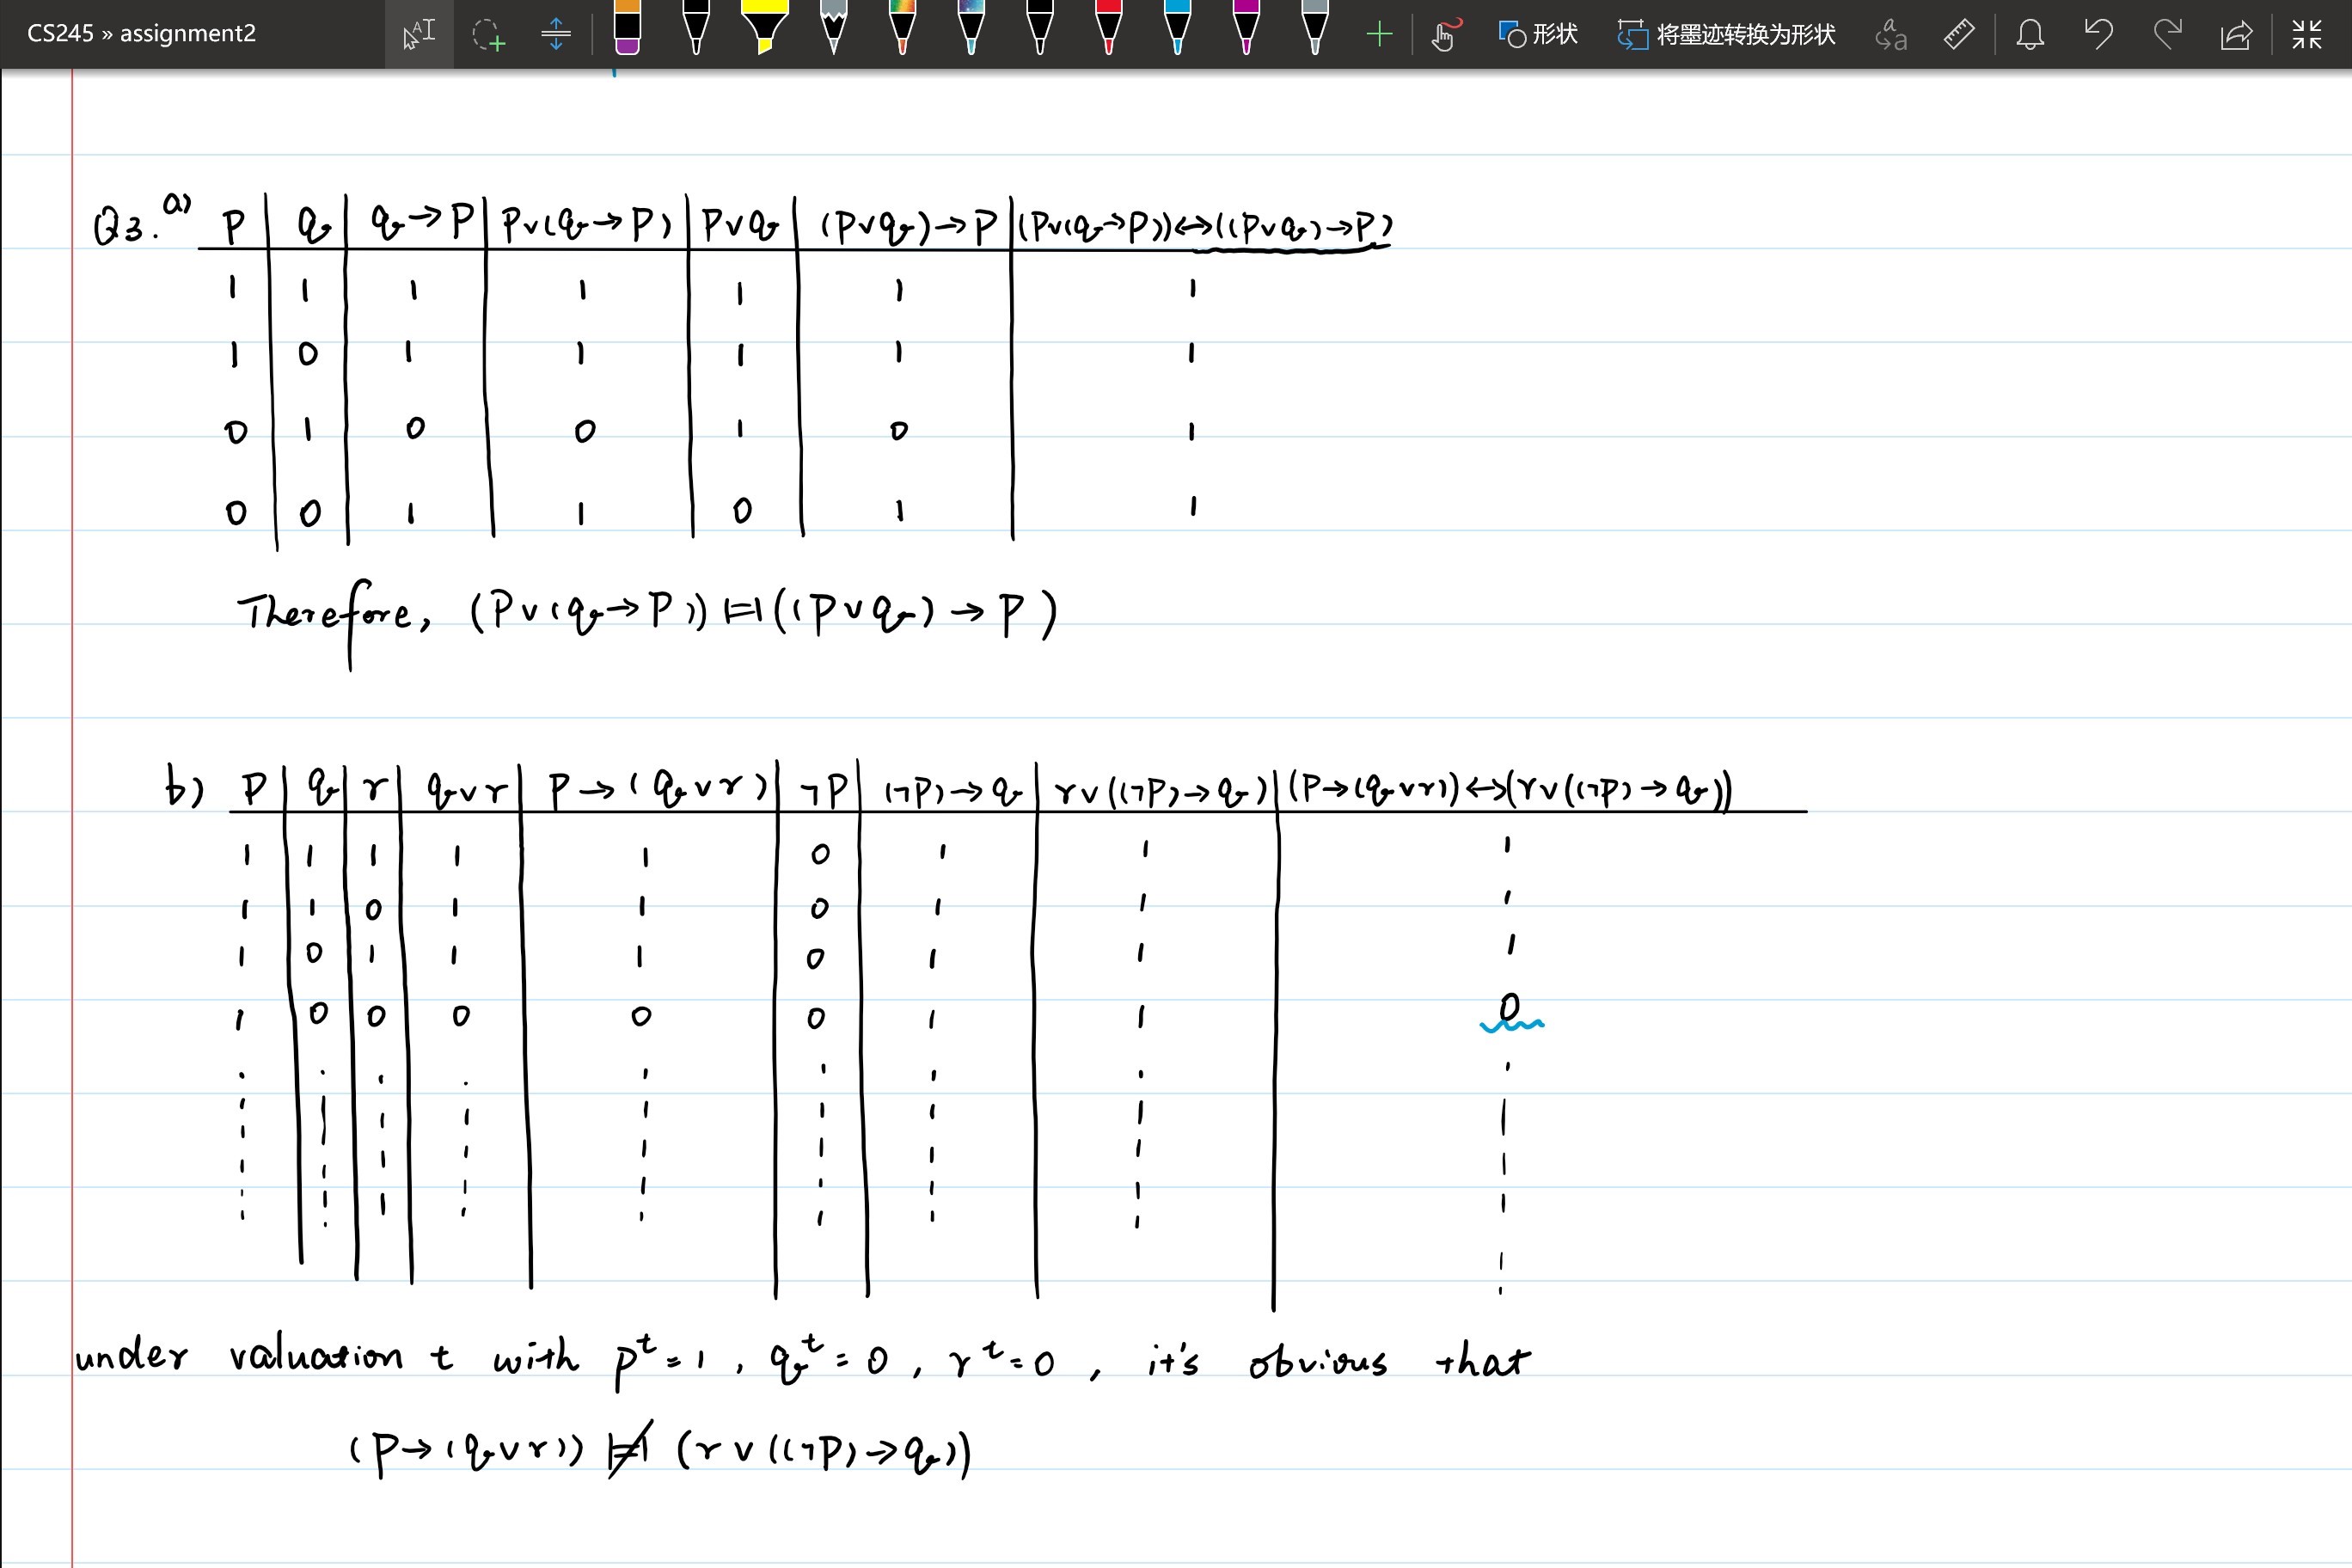 CS245 » assignment2
形状
将墨迹转换为形状
Q3. a) P q q→P P∨(q→P) P∨q (P∨q)→P (P∨(q→P))↔((P∨q)→P)
1 1 1 1 1 1 1
1 0 1 1 1 1 1
0 1 0 0 1 0 1
0 0 1 1 0 1 1
Therefore, (P∨(q→P)) ⊨⫤ ((P∨q)→P)
b) P q r q∨r P→(q∨r) ¬P (¬P)→q r∨((¬P)→q) (P→(q∨r))↔(r∨((¬P)→q))
1 1 1 1 1 0 1 1 1
1 1 0 1 1 0 1 1 1
1 0 1 1 1 0 1 1 1
1 0 0 0 0 0 1 1 0
under valuation t with pᵗ=1, qᵗ=0, rᵗ=0, it's obvious that
(P→(q∨r)) ⊭⫤ (r∨((¬P)→q))